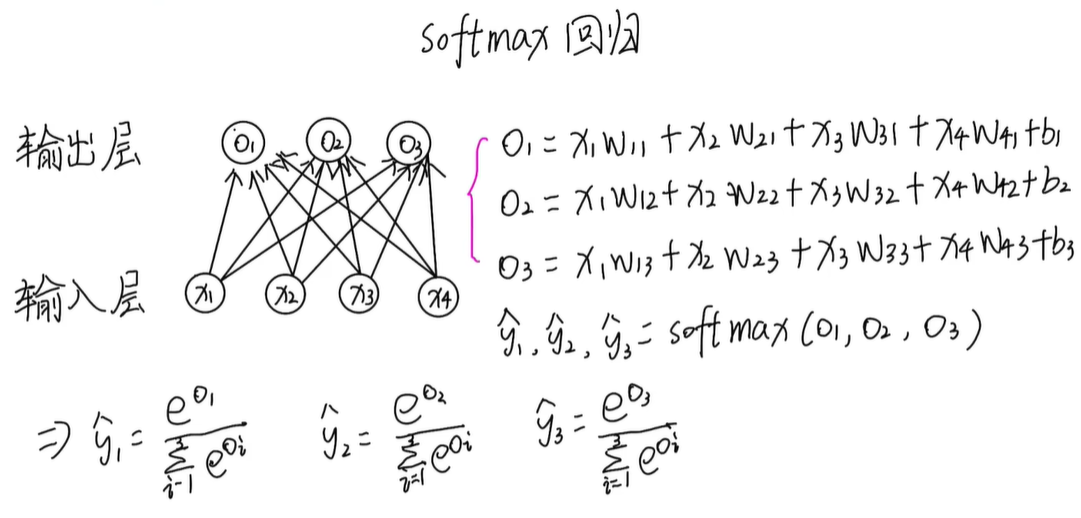 softmax 回归
输出层 o₁ o₂ o₃
o₁ = x₁w₁₁ + x₂w₂₁ + x₃w₃₁ + x₄w₄₁ + b₁
o₂ = x₁w₁₂ + x₂w₂₂ + x₃w₃₂ + x₄w₄₂ + b₂
o₃ = x₁w₁₃ + x₂w₂₃ + x₃w₃₃ + x₄w₄₃ + b₃
输入层 x₁ x₂ x₃ x₄
ŷ₁, ŷ₂, ŷ₃ = softmax (o₁, o₂, o₃)
⇒ ŷ₁ = e^{o₁} / ∑_{i-1}^{3} e^{o_i} ŷ₂ = e^{o₂} / ∑_{i=1}^{3} e^{o_i} ŷ₃ = e^{o₃} / ∑_{i=1}^{3} e^{o_i}